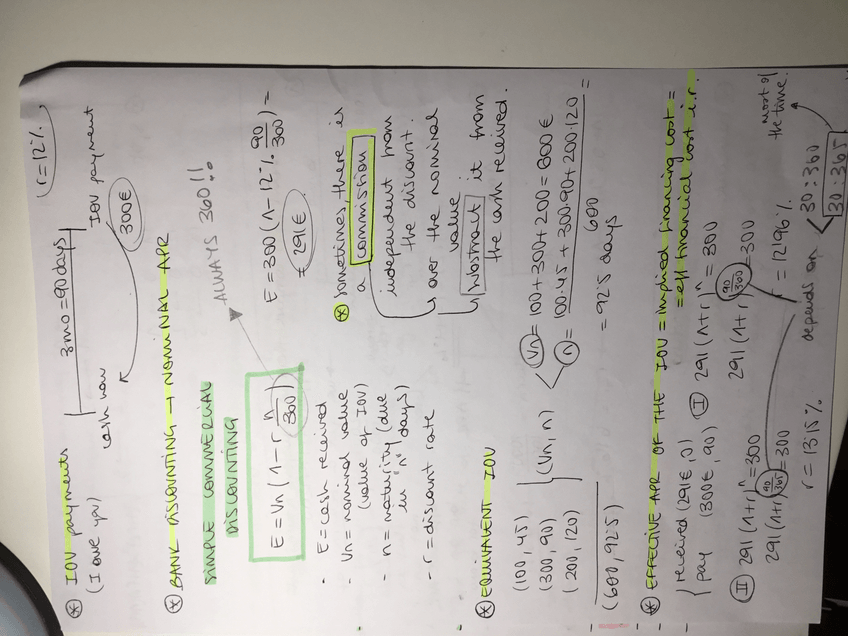 * IOV payments
(I love you)
3mo = 90 days
r = 12%
cash now
IOV payment
300€
* BANK DISCOUNTING → NOMINAL APR
SIMPLE COMMERCIAL
DISCOUNTING
ALWAYS 360!!
E = Vn (1 - r n/300)
E = 300 (1 - 12% 90/300) =
= 291€
- E = cash received
- Vn = nominal value
(value of IOV)
- n = maturity (due
in "n" days)
- r = discount rate
* sometimes, there is
a commistion
independent from
the discount.
over the nominal
value
substract it from
the cash received.
* EQUIVALENT IOV
(100, 45)
(300, 90)
(200, 120)
(Vn, n)
(600, 92'5)
Vn = 100 + 300 + 200 = 600€
n = 100·45 + 300·90 + 200·120 =
600
= 92'5 days
* EFFECTIVE APR OF THE IOV = implied financing cost =
= eff financial cost i.r.
received (291€, 0)
pay (300€, 90)
I 291 (1+r)^n = 300
291 (1+r)^90/360 = 300
r = 12'96%
II 291 (1+r)^n = 300
291 (1+r)^90/365 = 300
r = 13'15%
depends on
30:360
30:365
most of
the time.